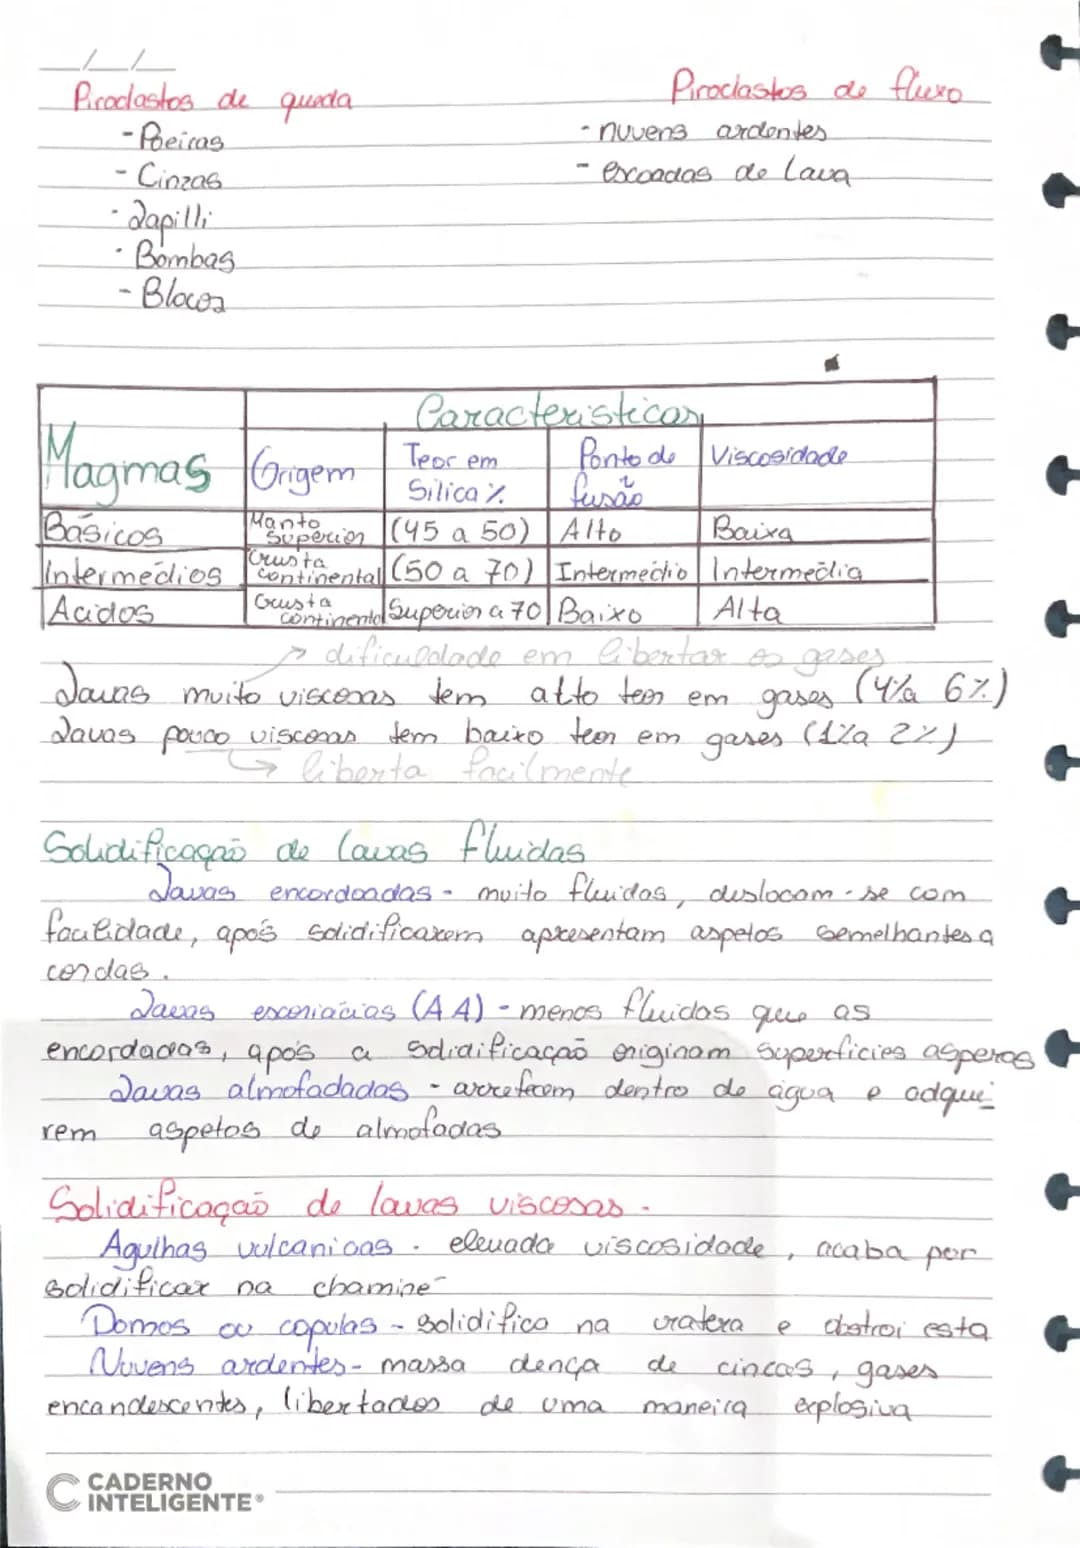 __/__/__
Piroclastos de queda
- Poeiras
- Cinzas
- Lapilli
- Bombas
- Blocos
Piroclastos de fluxo
- nuvens ardentes
- escoadas de Lava
Caracteristicas
Magmas Origem Teor em Silica % Ponto de fusão Viscosidade
Básicos Manto Superior (45 a 50) Alto Baixa
Intermédios Crusta continental (50 a 70) Intermédio Intermédia
Acidos Crusta continental Superior a 70 Baixo Alta
→ dificuldade em libertar os gases
Lavas muito viscosas tem alto teor em gases (4% a 6%)
Lavas pouco viscosas tem baixo teor em gases (1% a 2%)
↳ liberta facilmente
Solidificação de lavas fluidas
Lavas encordoadas - muito fluidas, deslocam-se com
facilidade, após solidificarem apresentam aspetos semelhantes a
cordas.
Lavas escoriácias (AA) - menos fluidas que as
encordadas, após a solidificação originam superficies asperas
Lavas almofadadas - arrefecem dentro de água e adqui-
rem aspetos de almofadas
Solidificação de lavas viscosas.
Agulhas vulcanicas - elevada viscosidade, acaba por
solidificar na chaminé
Domos ou copulas - solidifica na cratera e obstroi esta
Nuvens ardentes - massa dença de cincas, gases
encandescentes, libertados de uma maneira explosiva
CADERNO
INTELIGENTE®